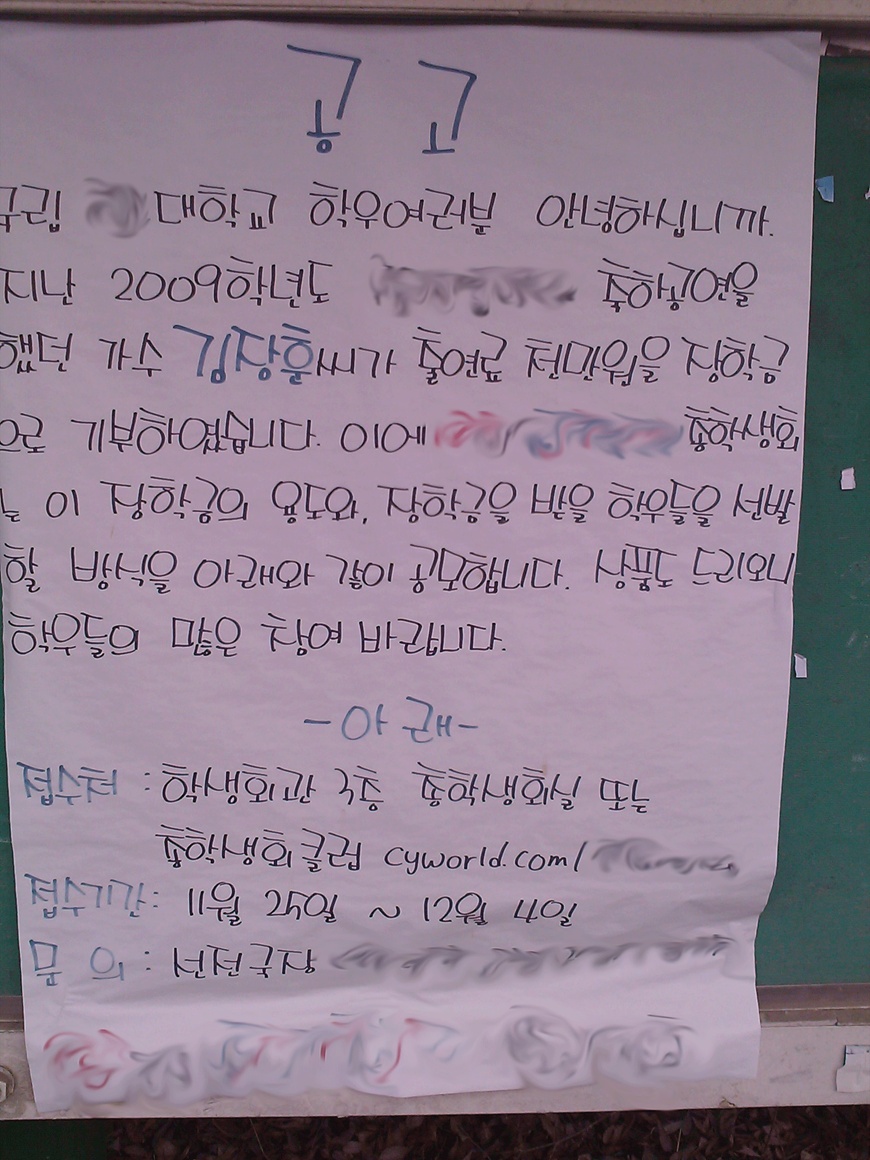 공고
국립 대학교 학우여러분 안녕하십니까.
지난 2009학년도 축하공연을
했던 가수 김장훈씨가 출연료 천만원을 장학금
으로 기부하였습니다. 이에 총학생회
는 이 장학금의 용도와, 장학금을 받을 학우들을 선발
할 방식을 아래와 같이 공모합니다. 상품도 드리오니
학우들의 많은 참여 바랍니다.
-아래-
접수처 : 학생회관 3층 총학생회실 또는
총학생회클럽 cyworld.com/
접수기간: 11월 25일 ~ 12월 4일
문의 : 선전국장